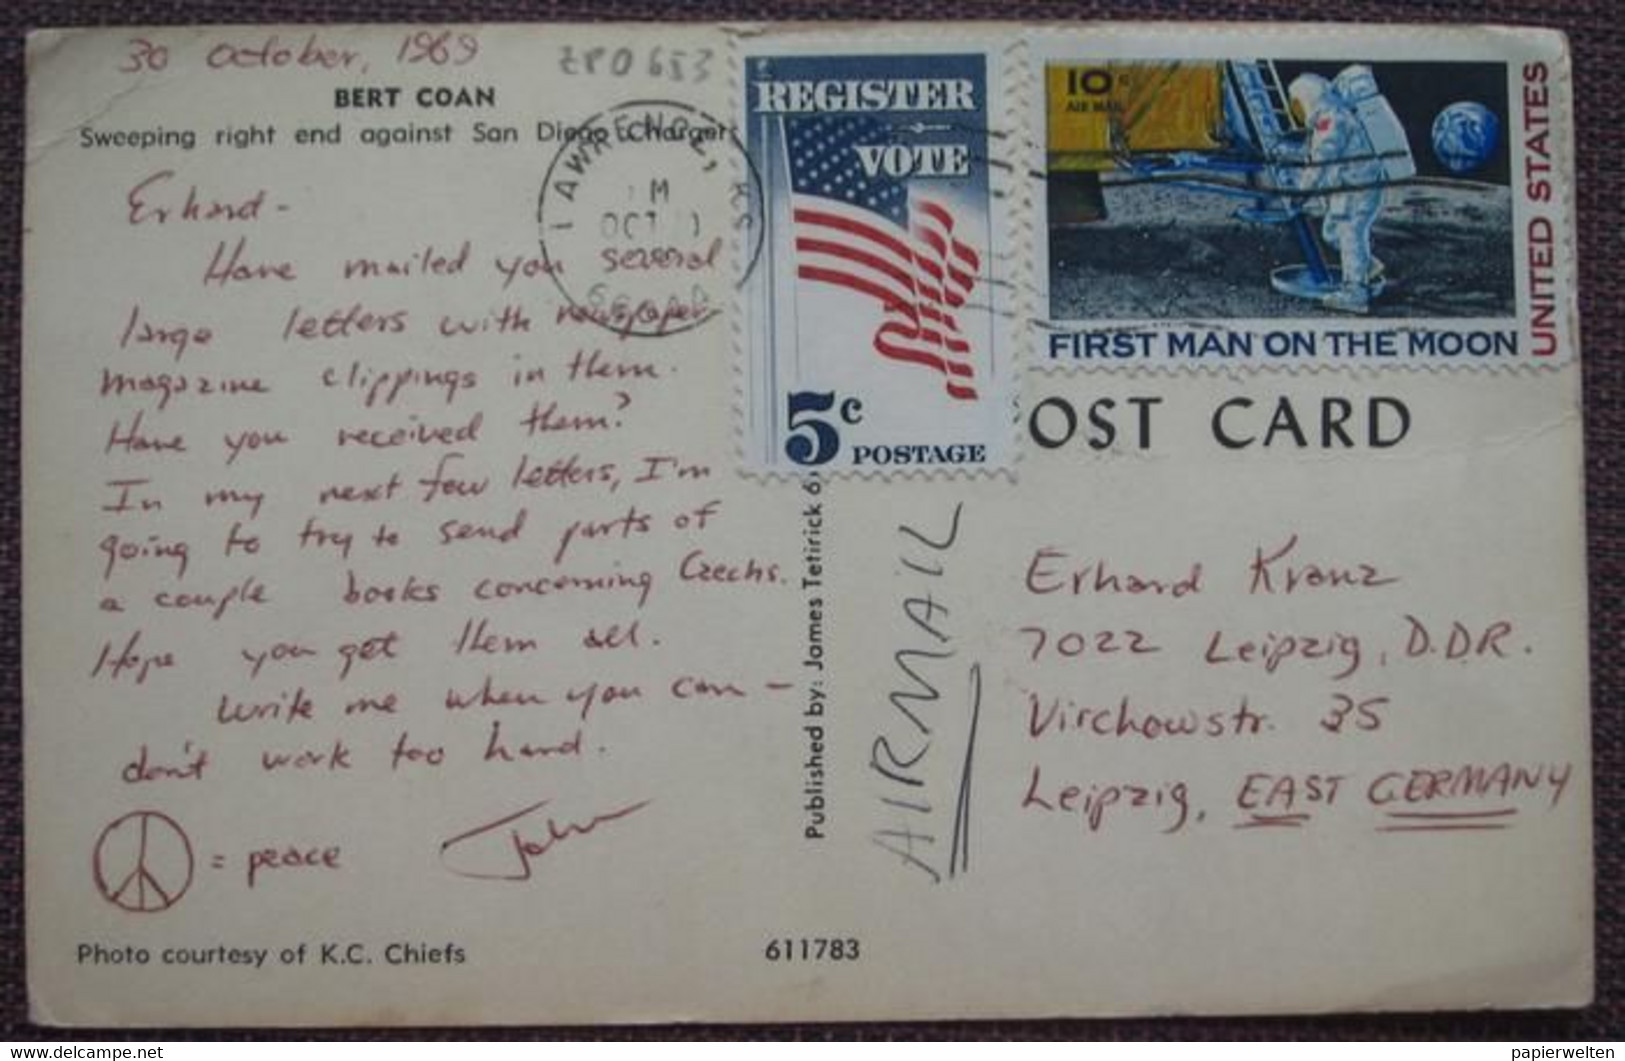 30 October, 1969
ZPO 653
BERT COAN
Sweeping right end against San Diego Chargers
LAWRENCE, KS
OCT
Erhard -
Have mailed you several
large letters with newspaper
magazine clippings in them.
Have you received them?
In my next few letters, I'm
going to try to send parts of
a couple books concerning Czechs.
Hope you get them all.
Write me when you can -
don't work too hard.
= peace
John
Photo courtesy of K.C. Chiefs
611783
Published by: James Tetirick
REGISTER
VOTE
5c
POSTAGE
10c
AIR MAIL
UNITED STATES
FIRST MAN ON THE MOON
OST CARD
AIRMAIL
Erhard Kranz
7022 Leipzig, D.D.R.
Virchowstr. 35
Leipzig, EAST GERMANY
www.delcampe.net
papierwelten